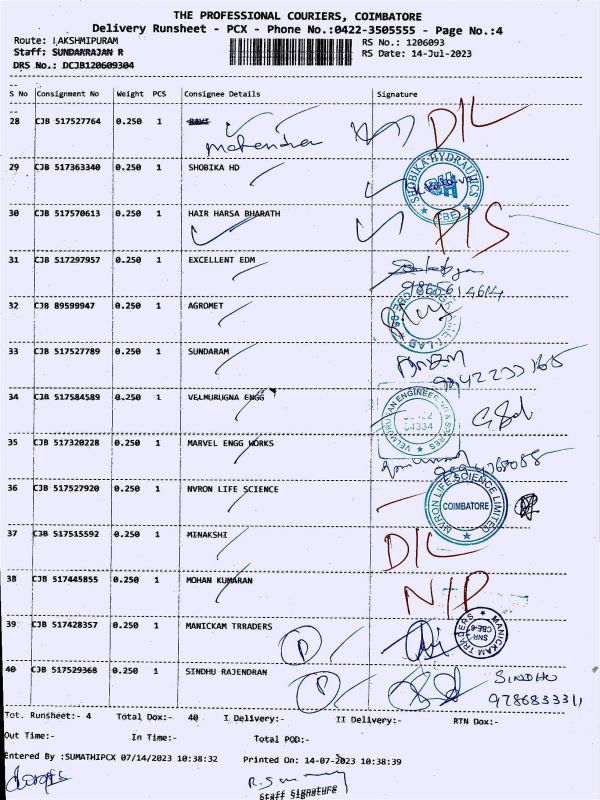 THE PROFESSIONAL COURIERS, COIMBATORE
Delivery Runsheet - PCX - Phone No.:0422-3505555 - Page No.:4
Route: LAKSHMIPURAM RS No.: 1206093
Staff: SUNDARRAJAN R RS Date: 14-Jul-2023
DRS No.: DCJB120609304
S No Consignment No Weight PCS Consignee Details Signature
28 CJB 517527764 0.250 1 D/L
Mahendra
29 CJB 517363340 0.250 1 SHOBIKA HD SHOBIKA HYDRAULICS SH CBE
30 CJB 517570613 0.250 1 HAIR HARSA BHARATH P/S
31 CJB 517297957 0.250 1 EXCELLENT EDM
32 CJB 89599947 0.250 1 AGROMET
33 CJB 517527789 0.250 1 SUNDARAM
34 CJB 517584589 0.250 1 VELMURUGNA ENGG VELMURUGAN ENGINEERS & SPARES
35 CJB 517320228 0.250 1 MARVEL ENGG WORKS
36 CJB 517527920 0.250 1 NVRON LIFE SCIENCE NVRON LIFE SCIENCE LIMITED COIMBATORE
37 CJB 517515592 0.250 1 MINAKSHI D/L
38 CJB 517445855 0.250 1 MOHAN KUMARAN N/P
39 CJB 517428357 1 MANICKAM TRRADERS P MANICKAM TRADERS SNR CBE-6
0.250
40 CJB 517529368 0.250 1 SINDHU RAJENDRAN P SINDHU
9786833311
Tot. Runsheet:- 4 Total Dox:- 40 I Delivery:- II Delivery:- RTN Dox:-
Out Time:- In Time:- Total POD:-
Entered By :SUMATHIPCX 07/14/2023 10:38:32 Printed On: 14-07-2023 10:38:39
Staff Signature